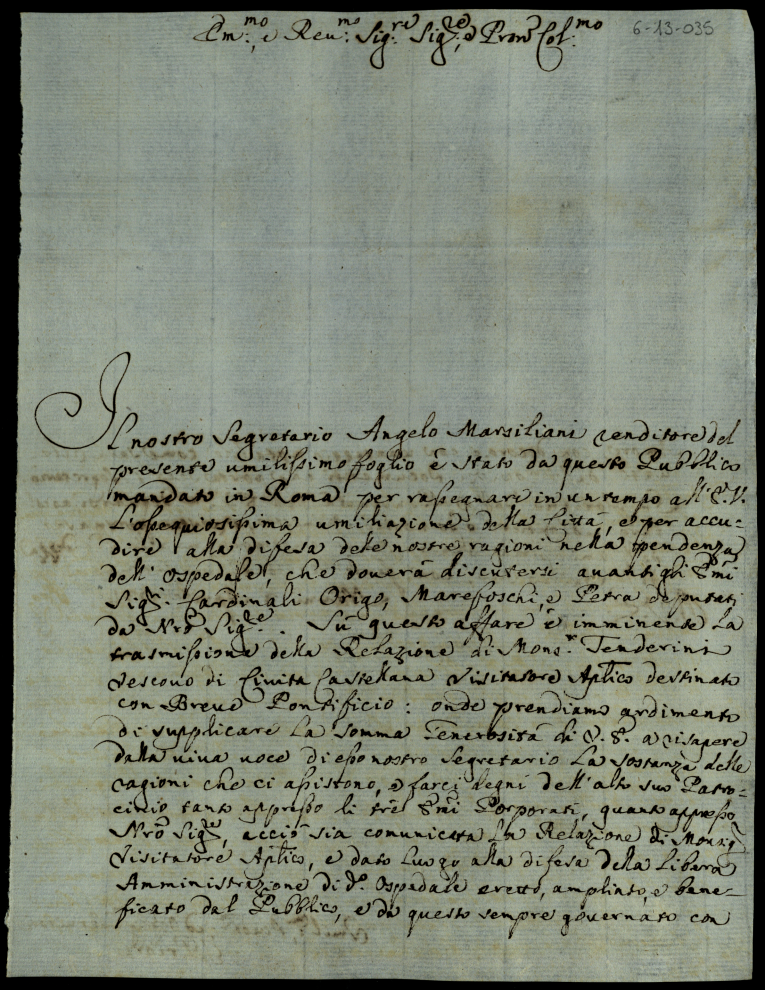 Em.mo e Reu.mo Sig.re Sig.re, e Pron Col.mo
6-13-035
Il nostro Segretario Angelo Marsiliani renditore del
presente umilissimo foglio è stato da questo Pubblico
mandato in Roma per rassegnare in un tempo all' E. V.
l'ossequiosissima umiliazione della Città, e per accu=
dire alla difesa delle nostre ragioni nella pendenza
dell' Ospedale, che douerà discutersi auanti gli Emi
Sigri Cardinali Origo, Marefoschi, e Petra deputati
da Nro Sigre. Sù questo affare è imminente la
trasmissione della Relazione di Mons.r Tenderini
Vescouo di Ciuita Castellana Visitatore Aplico destinato
con Breue Pontificio: onde prendiamo ardimento
di supplicare la somma Generosità di V. E. a risapere
dalla viua uoce di esso nostro Segretario la sostanza delle
ragioni che ci assistono, e farci degni dell' alto suo Patro=
cinio tanto appresso li trè Emi Porporati, quanto appresso
Nro Sigre, acciò sia comunicata la Relazione di Monsig.r
Visitatore Aplico, e dato luogo alla difesa della libera
Amministrazione di d.o Ospedale eretto, ampliato, e bene=
ficato dal Pubblico, e da questo sempre gouernato con